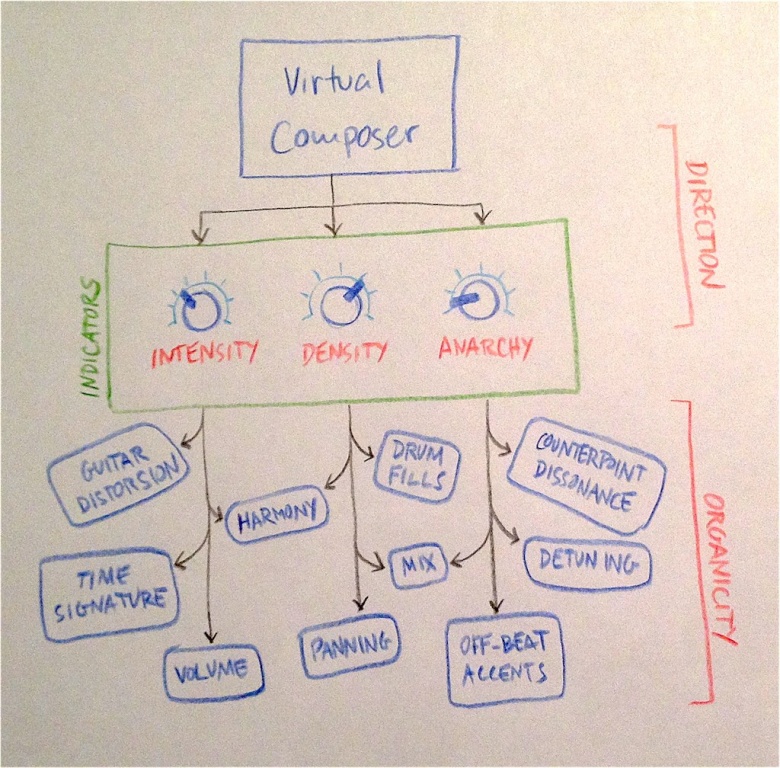 Virtual
Composer
DIRECTION
INDICATORS
INTENSITY
DENSITY
ANARCHY
GUITAR
DISTORSION
DRUM
FILLS
COUNTERPOINT
DISSONANCE
HARMONY
ORGANICITY
TIME
SIGNATURE
MIX
DETUNING
VOLUME
PANNING
OFF-BEAT
ACCENTS